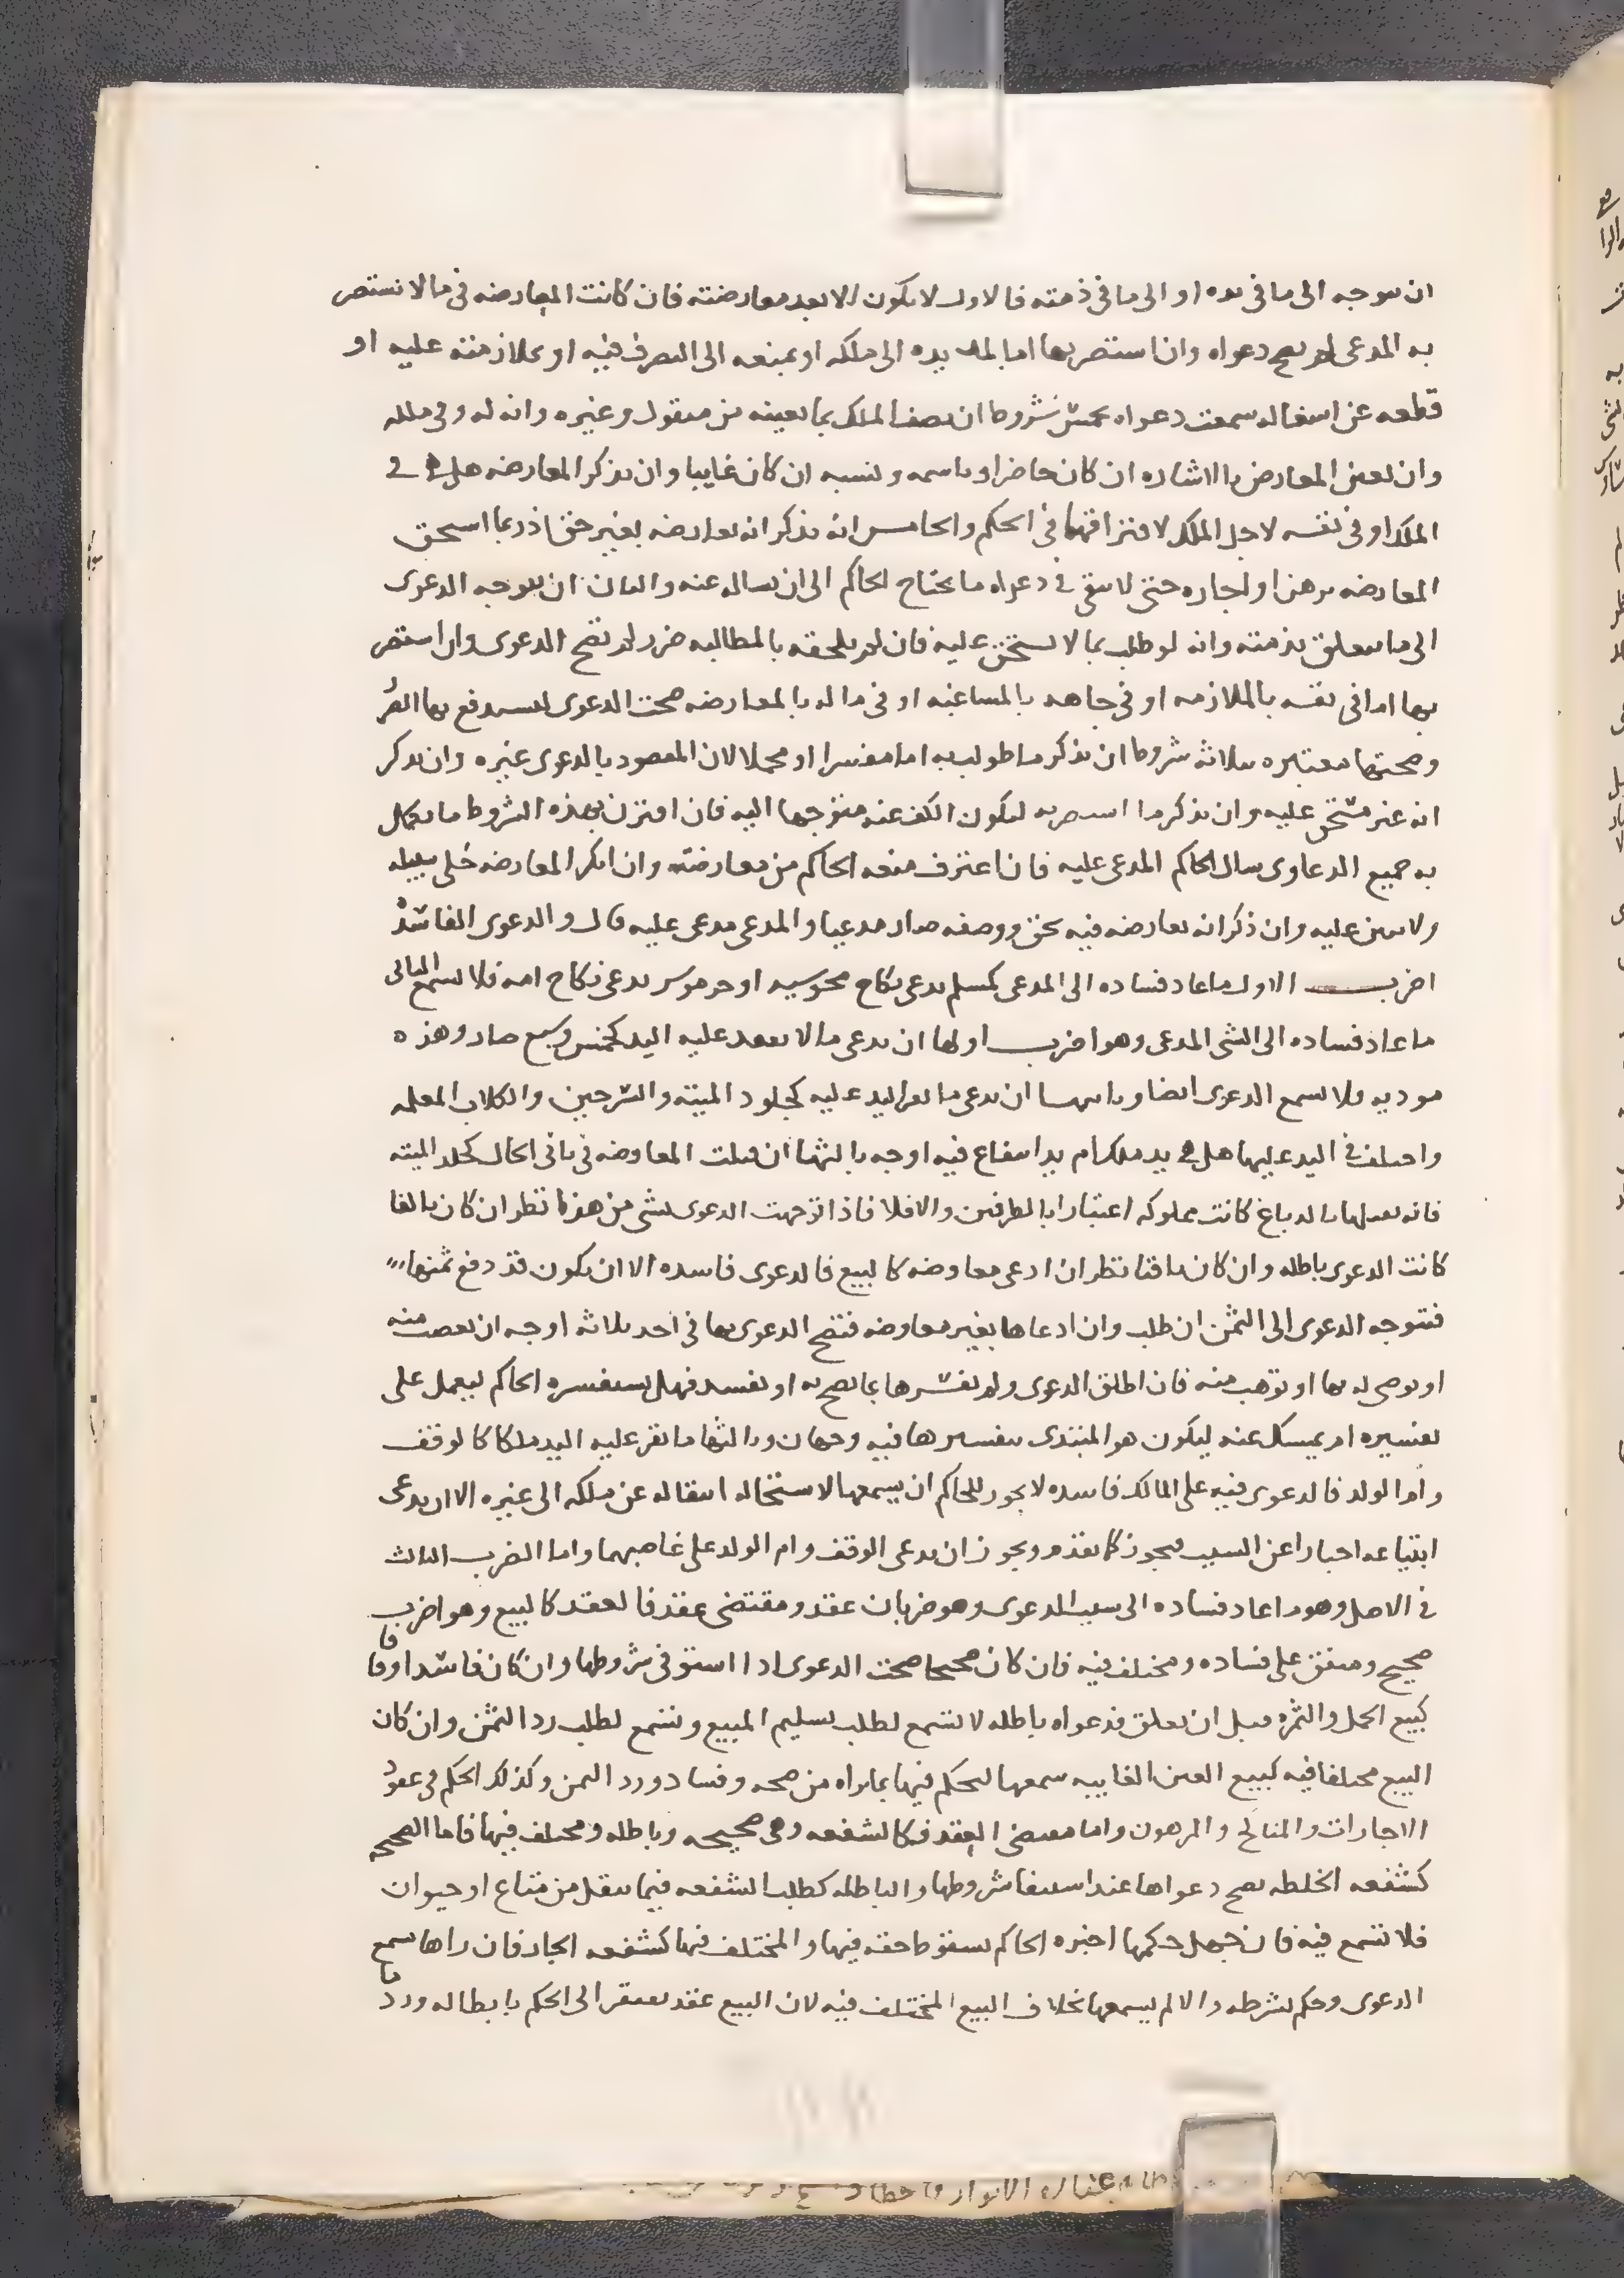 ان يتوجه الى ما في يده او الى ما في ذمته فالاول لا يكون الا بعد معارضته فان كانت المعارضه في ما لا يستضر
به المدعى لم يصح دعواه وان استضر بها اما بمد يده الى ملكه او بمنعه الى التصرف فيه او بملازمته عليه او
قطعه عن اشغاله سمعت دعواه بخمس شروط ان يصف الملك بما يعينه من منقول وغيره وانه له وفي ملكه
وان يعين المعارض بالاشاره ان كان حاضرا وباسمه ونسبه ان كان غايبا وان يذكر المعارضه هل هي في
الملك او في نفسه لاجل الملك لافتراقهما في الحكم والخامس ان يذكر انه يعارضه بغير حق اذ ربما استحق
المعارضه برهن او اجاره حتى لا يبقى في دعواه ما يحتاج الحاكم الى ان يساله عنه والثاني ان يتوجه الدعوى
الى ما يتعلق بذمته وانه لو طلب بما لا يستحق عليه فان لم يلحقه بالمطالبه ضرر لم تصح الدعوى وان استضر
بها اما في نفسه بالملازمه او في جاهه بالمساعيه او في ماله بالمعارضه صحت الدعوى ليستدفع بها الضرر
وصحتها معتبره بثلاثه شروط ان يذكر ما طولب به اما مفسرا او مجملا لان المقصود بالدعوى غيره وان يذكر
انه غير مستحق عليه وان يذكر ما استضر به ليكون الكف عنه متوجها اليه فان اقترن بهذه الشروط ما يكمل
به جميع الدعاوى سال الحاكم المدعى عليه فان اعترف منعه الحاكم من معارضته وان انكر المعارضه خلى سبيله
ولا يمين عليه وان ذكر انه يعارضه فيه بحق ووصفه صار مدعيا والمدعي مدعى عليه قال والدعوى الفاسده
اضرب الاول ما عاد فساده الى المدعي كمسلم يدعي نكاح مجوسيه او حر موسر يدعي نكاح امه فلا تسمع الثاني
ما عاد فساده الى الشي المدعى وهو اضرب اولها ان يدعي ما لا يقعد عليه اليد كخمر وسبع ضار وهذه
موديه ولا تسمع الدعوى ايضا وثانيها ان يدعي ما تقر اليد عليه كجلود الميته والسرجين والكلاب المعلمه
واختلف في اليد عليها هل هي يد ملك ام يد انتفاع فيه اوجه ثالثها ان قبلت المعاوضه في ثاني الحال كجلد الميته
فانه يقبلها بالدباغ كانت مملوكه اعتبارا بالطرفين والا فلا فاذا توجهت الدعوى بشي من هذا نظر ان كان تالفا
كانت الدعوى باطله وان كان باقيا نظر ان ادعى معاوضه كالبيع فالدعوى فاسده الا ان يكون قد دفع ثمنها
فتتوجه الدعوى الى الثمن ان طلب وان ادعاها بغير معاوضه فتصح الدعوى بها في احد ثلاثه اوجه ان يغصب منه
او يوصى له بها او توهب منه فان اطلق الدعوى ولم يفسرها بما يصح به او يفسد فهل يستفسره الحاكم ليعمل على
تفسيره ام يمسك عنه ليكون هو المبتدي بتفسيرها فيه وجهان وثالثها ما تقر عليه اليد ملكا كالوقف
وام الولد فالدعوى فيه على المالك فاسده لا يجوز للحاكم ان يسمعها لاستحاله انتقاله عن ملكه الى غيره الا ان يدعى
ابتياعه اخبارا عن السبب فيجوز كما تقدم ويجوز ان يدعى الوقف وام الولد على غاصبهما واما الضرب الثالث
في الاصل وهو ما عاد فساده الى سبب الدعوى وهو ضربان عقد ومقتضى عقد فالعقد كالبيع وهو اضرب
صحيح ومتفق على فساده ومختلف فيه فان كان صحيحا صحت الدعوى اذا استوفى شروطها وان كان فاسدا وفاقا
كبيع الحمل والثمره قبل ان تخلق فدعواه باطله لا تسمع لطلب تسليم المبيع وتسمع لطلب رد الثمن وان كان
البيع مختلفا فيه كبيع العين الغايبه سمعها ليحكم فيها بما يراه من صحه وفساد ورد الثمن وكذلك الحكم في عقود
الاجارات والمناكح والمرهون واما مقتضى العقد فكالشفعه وهي صحيحه وباطله ومختلف فيها فاما الصحيحه
كشفعه الخلطه تصح دعواها عند استيفا شروطها والباطله كطلب الشفعه فيما ينقل من متاع او حيوان
فلا تسمع فيه فان جهل حكمها اخبره الحاكم بسقوط حقه فيها والمختلف فيها كشفعه الجار فان راها سمع
الدعوى وحكم بشرطه والا لم يسمعها بخلاف البيع المختلف فيه لان البيع عقد يفتقر الى الحكم بابطاله ورد ما